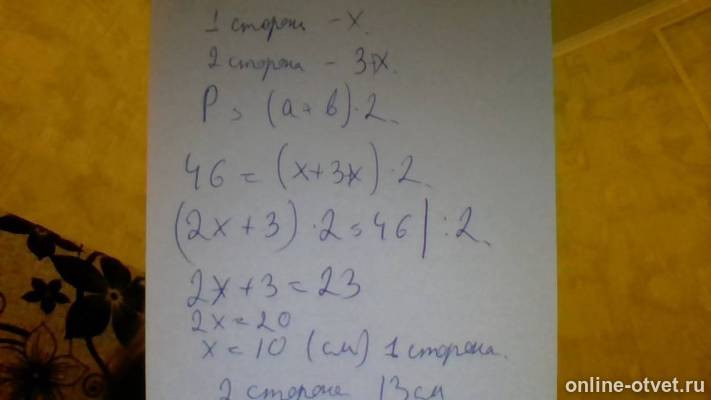 1 сторона - x.
2 сторона - 3+x.
P = (a + b) · 2.
46 = (x+3+x) · 2.
(2x + 3) · 2 = 46 | : 2.
2x + 3 = 23
2x = 20
x = 10 (см) 1 сторона.
2 сторона 13 см
online-otvet.ru